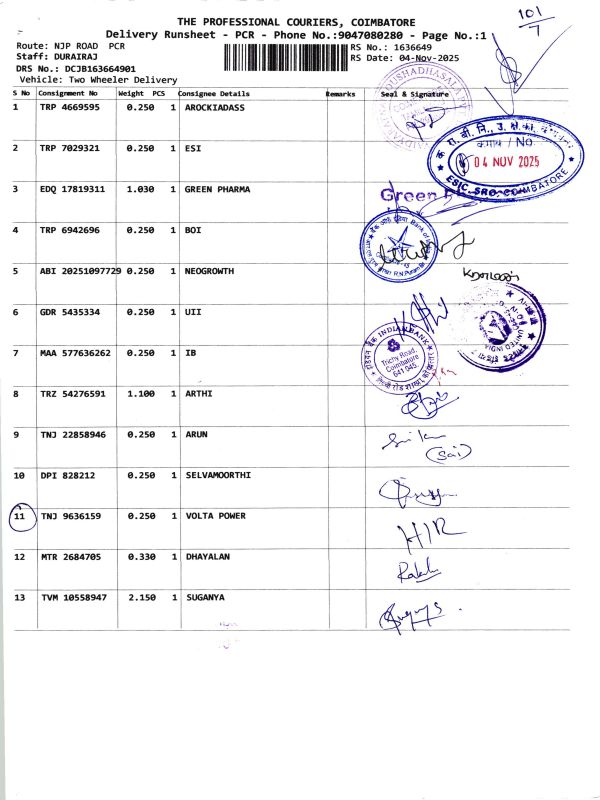 THE PROFESSIONAL COURIERS, COIMBATORE
Delivery Runsheet - PCR - Phone No.:9047080280 - Page No.:1
101/7
Route: NJP ROAD PCR
RS No.: 1636649
Staff: DURAIRAJ
RS Date: 04-Nov-2025
DRS No.: DCJB163664901
Vehicle: Two Wheeler Delivery
S No Consignment No Weight PCS Consignee Details Remarks Seal & Signature
1 TRP 4669595 0.250 1 AROCKIADASS
2 TRP 7029321 0.250 1 ESI
No.
04 NOV 2025
ESIC, SRO, COIMBATORE
3 EDQ 17819311 1.030 1 GREEN PHARMA
Green
4 TRP 6942696 0.250 1 BOI
5 ABI 20251097729 0.250 1 NEOGROWTH
6 GDR 5435334 0.250 1 UII
7 MAA 577636262 0.250 1 IB
INDIAN BANK
Trichy Road,
Coimbatore
641 045.
8 TRZ 54276591 1.100 1 ARTHI
9 TNJ 22858946 0.250 1 ARUN
(Sai)
10 DPI 828212 0.250 1 SELVAMOORTHI
11 TNJ 9636159 0.250 1 VOLTA POWER
12 MTR 2684705 0.330 1 DHAYALAN
13 TVM 10558947 2.150 1 SUGANYA